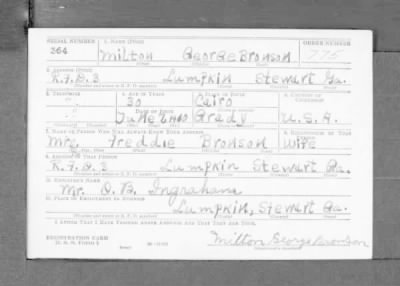 SERIAL NUMBER 1. NAME (Print) ORDER NUMBER
364 Milton George Bronson 775
2. ADDRESS (Print)
R.F.D. 3 Lumpkin Stewart Ga.
3. TELEPHONE 4. AGE IN YEARS 5. PLACE OF BIRTH 6. COUNTRY OF CITIZENSHIP
30 Cairo
June Grady U.S.A.
7. NAME OF PERSON WHO WILL ALWAYS KNOW YOUR ADDRESS 8. RELATIONSHIP OF THAT PERSON
Mrs. Freddie Bronson Wife
9. ADDRESS OF THAT PERSON
R.F.D. 3 Lumpkin Stewart Ga.
10. EMPLOYER'S NAME
Mr. O. B. Ingraham
11. PLACE OF EMPLOYMENT OR BUSINESS
Lumpkin, Stewart Ga.
I AFFIRM THAT I HAVE VERIFIED ABOVE ANSWERS AND THAT THEY ARE TRUE.
REGISTRATION CARD
D. S. S. FORM 1
Milton George Bronson